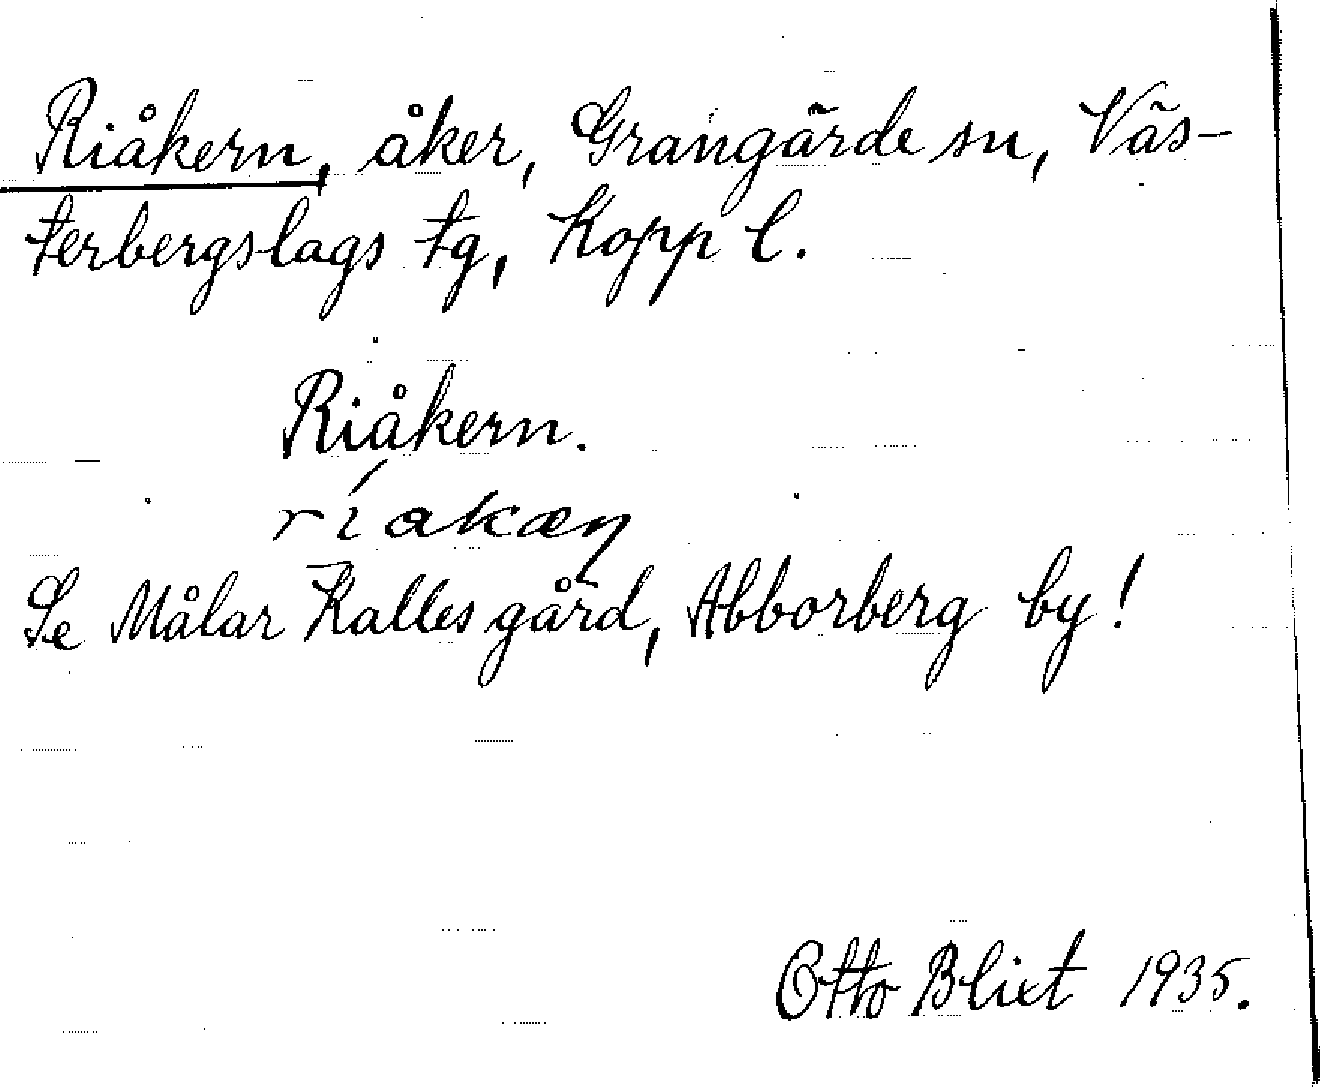 Riåkern, åker, Grangärde sn, Väs-
terbergslags tg, Kopp l.
Riåkern.
ríakæŋ
Se Målar Kalles gård, Abborberg by!
Otto Blixt 1935.